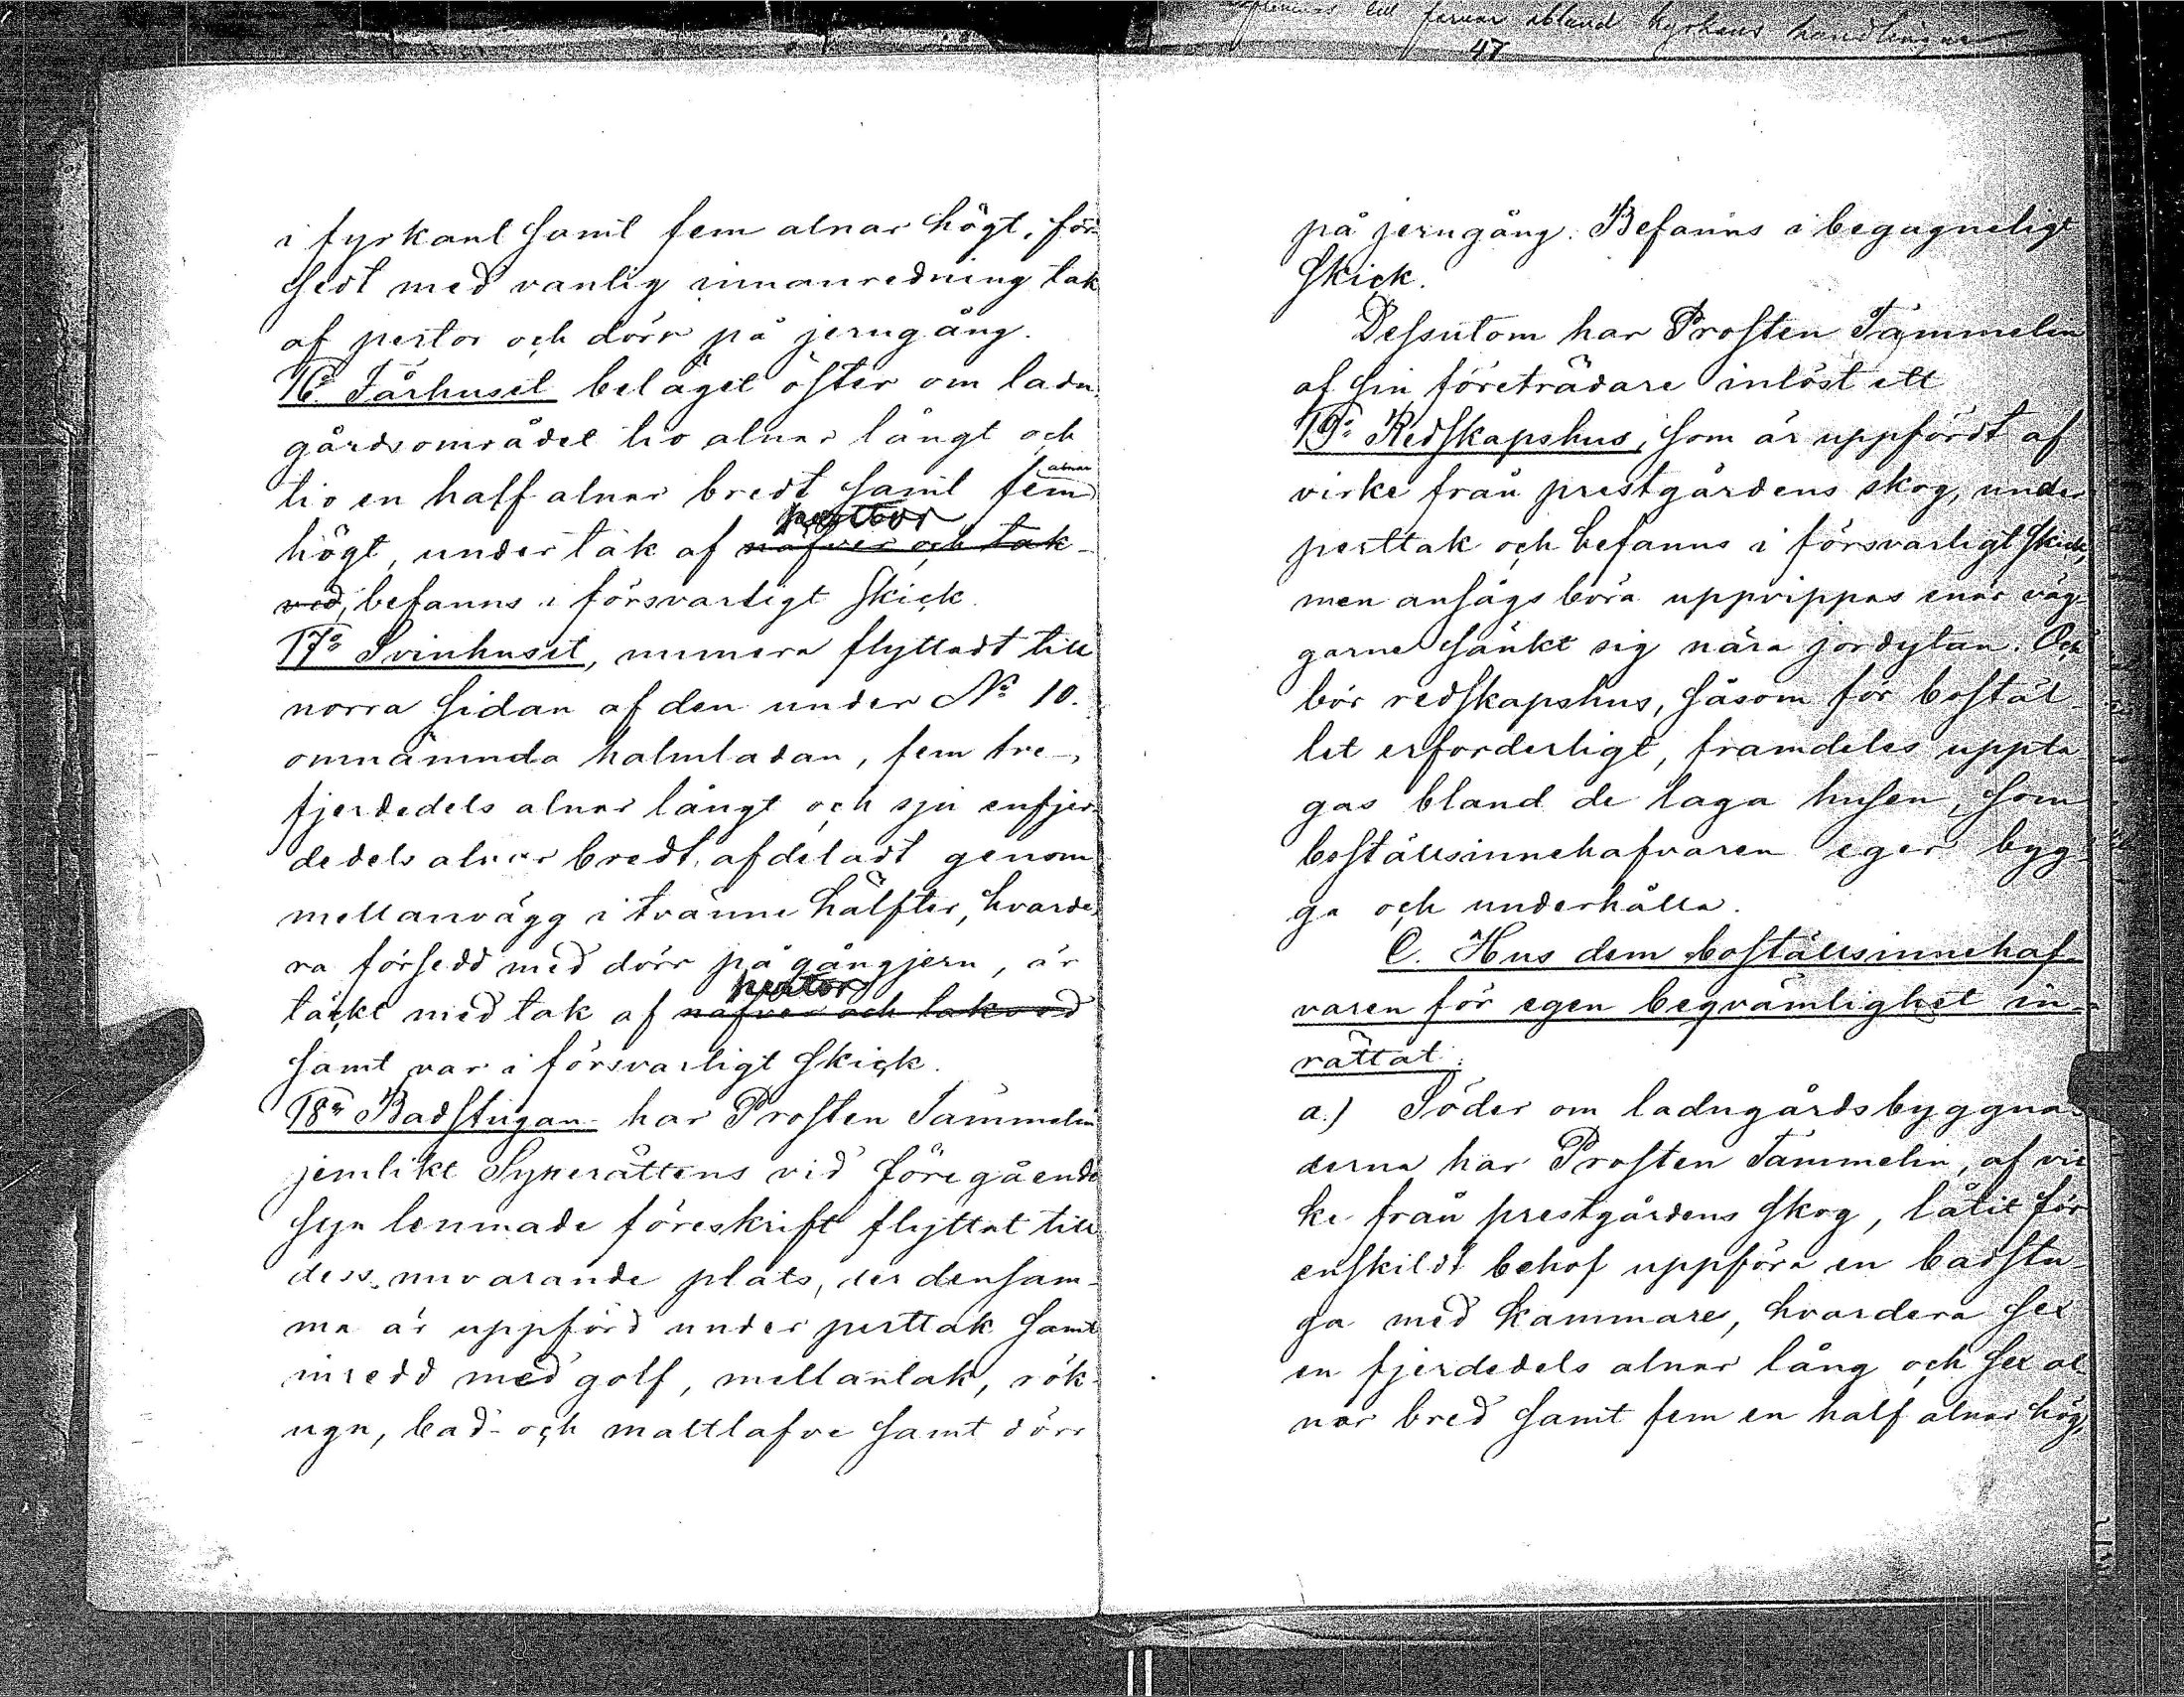 i fyrkant samt fem alnar högt, för-
sedt med vanlig innanredning tak
af pertor och dörr på jerngång.
16:o Fårhuset beläget öster om ladu-
gårdsområdet tio alnar långt och
tio en half alnar bredt samt fem alnar
högt, under tak af pertor näfver och tak-
ved, befanns i försvarligt skick.
17:o Svinhuset, numera flyttadt till
norra sidan af den under No 10.
omnämnda halmladan, fem tre-
fjerdedels alnar långt och sju enfjer-
dedels alnar bredt, afdeladt genom
mellanvägg i tvänne hälfter, hvarde-
ra försedd med dörr på gångjern, är
täckt med tak af pertor näfver och takved
samt var i försvarligt skick.
18:o Badstugan har Prosten Tammelin
jemlikt Synerättens vid föregående
syn lemnade föreskrift flyttat till
dess nuvarande plats, der densam-
ma är uppförd under perttak samt
inredd med golf, mellantak, rök-
ugn, bad- och maltlafve samt dörr
till farvar ibland kyrkans handlingar
47
på jerngång. Befanns i begagneligt
skick.
Dessutom har Prosten Tammelin
af sin företrädare inlöst ett
19:o Redskapshus, som är uppfördt af
virke från prestgårdens skog, under
perttak och befanns i försvarligt skick,
men ansågs böra uppvippas enär väg-
garne sänkt sig nära jordytan. Och
bör redskapshus, såsom för bostäl-
let erforderligt, framdeles uppta-
gas bland de laga husen, som
boställsinnehafvaren eger byg-
ga och underhålla.
C. Hus dem boställsinnehaf-
varen för egen beqvämlighet in-
rättat.
a.) Söder om ladugårdsbyggna-
derna har Prosten Tammelin, af vir
ke från prestgårdens skog, låtit för
enskildt behof uppföra en badstu-
ga med kammare, hvardera sex
en fjerdedels alnar lång och sex al-
nar bred samt fem en half alnar hög,